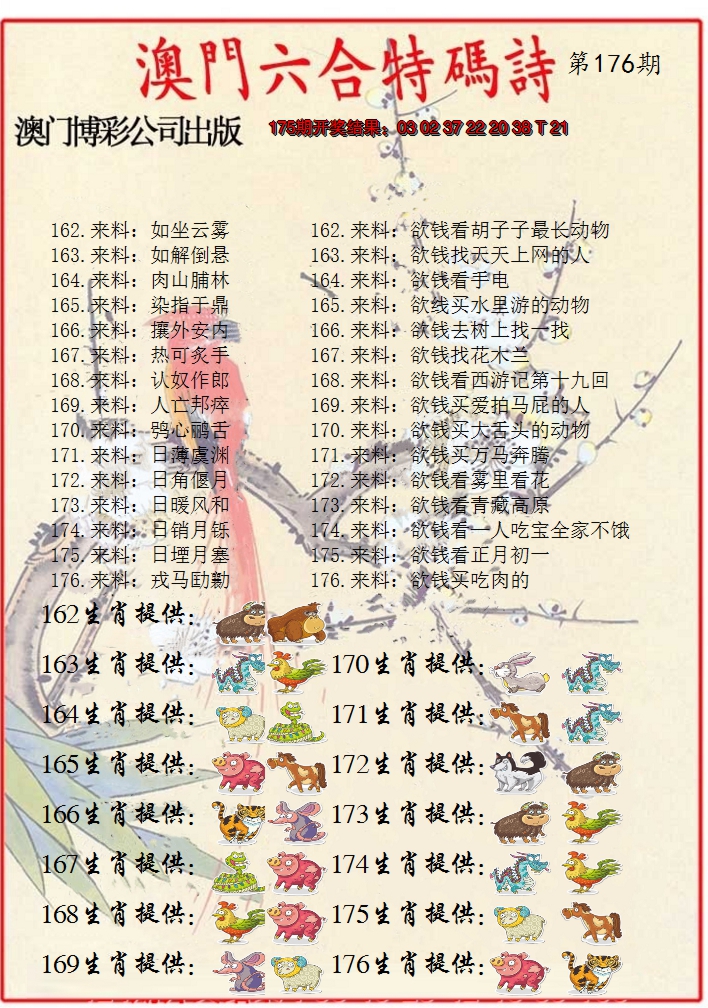 澳門六合特碼詩 第176期
澳门博彩公司出版 175期开奖结果：03 02 37 22 20 38 T 21
162.来料：如坐云雾 162.来料：欲钱看胡子子最长动物
163.来料：如解倒悬 163.来料：欲钱找天天上网的人
164.来料：肉山脯林 164.来料：欲钱看手电
165.来料：染指于鼎 165.来料：欲线买水里游的动物
166.来料：攘外安内 166.来料：欲钱去树上找一找
167.来料：热可炙手 167.来料：欲钱找花木兰
168.来料：认奴作郎 168.来料：欲钱看西游记第十九回
169.来料：人亡邦瘁 169.来料：欲钱买爱拍马屁的人
170.来料：鸮心鹂舌 170.来料：欲钱买大舌头的动物
171.来料：日薄虞渊 171.来料：欲钱买万马奔腾
172.来料：日角偃月 172.来料：欲钱看雾里看花
173.来料：日暖风和 173.来料：欲钱看青藏高原
174.来料：日销月铄 174.来料：欲钱看一人吃宝全家不饿
175.来料：日堙月塞 175.来料：欲钱看正月初一
176.来料：戎马劻勷 176.来料：欲钱买吃肉的
162生肖提供：
163生肖提供： 170生肖提供：
164生肖提供： 171生肖提供：
165生肖提供： 172生肖提供：
166生肖提供： 173生肖提供：
167生肖提供： 174生肖提供：
168生肖提供： 175生肖提供：
169生肖提供： 176生肖提供：